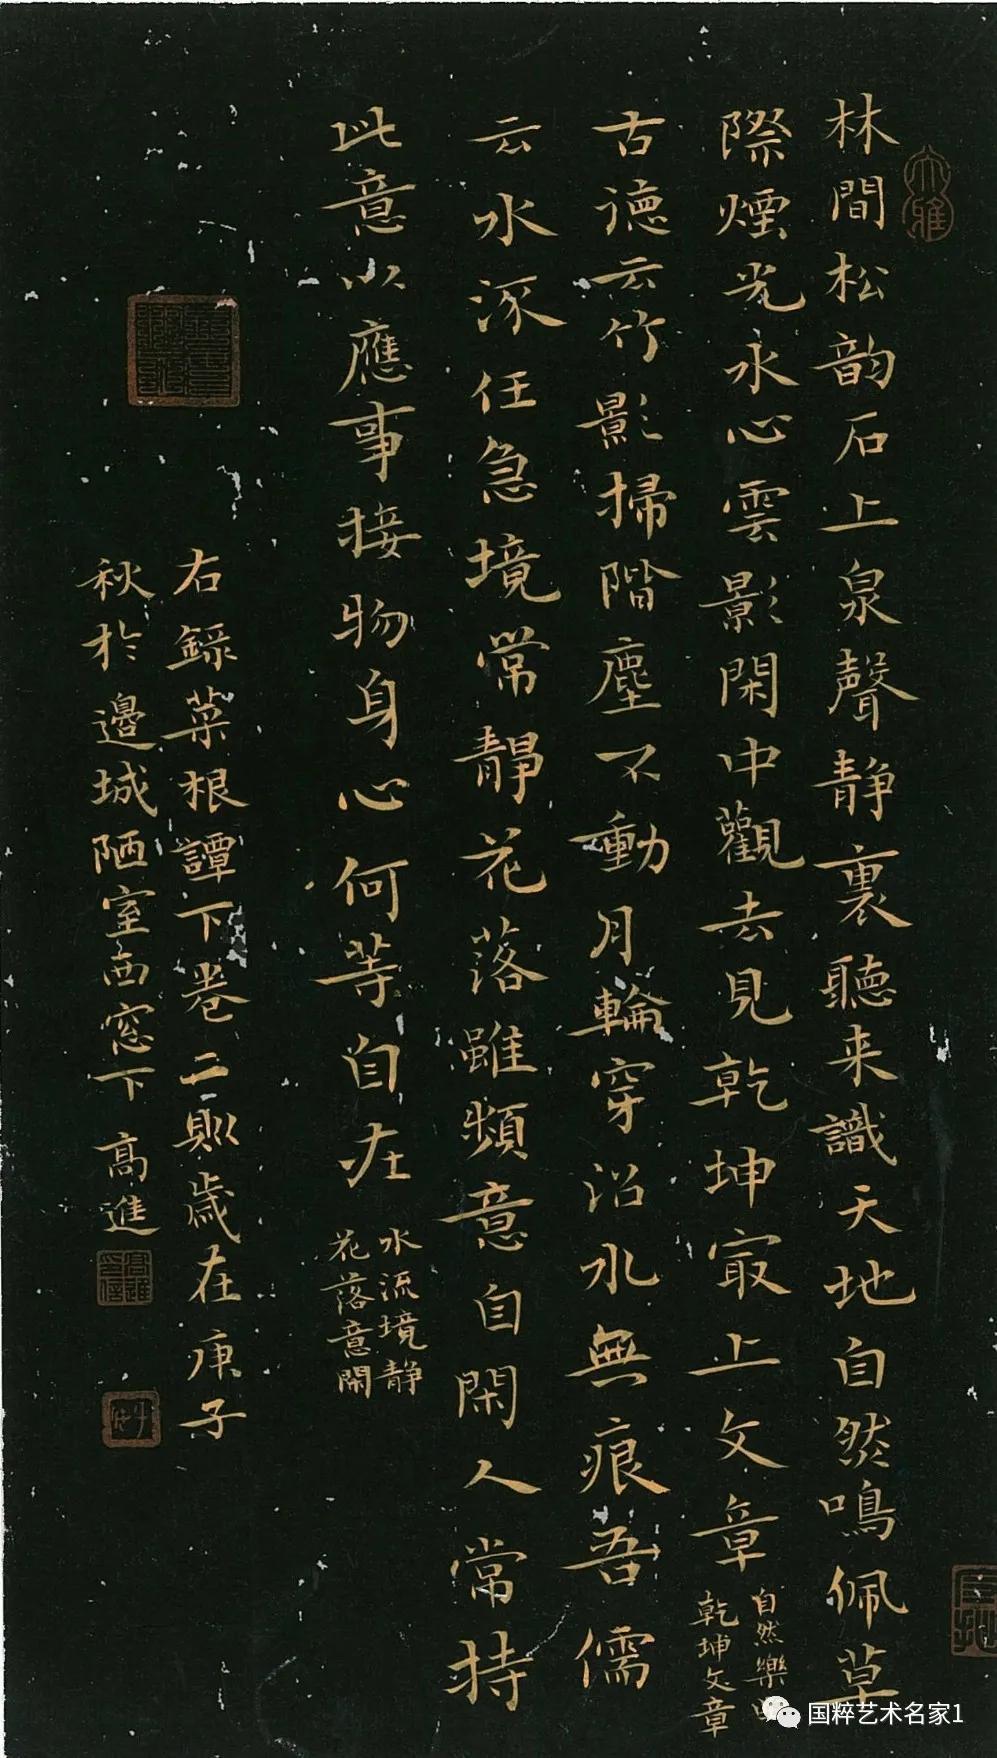 林間松韵石上泉聲静裏聽来識天地自然鳴佩草
際煙光水心雲影閑中觀去見乾坤冣上文章
自然樂
乾坤文章
古德云竹影掃階塵不動月輪穿沼水無痕吾儒
云水流任急境常靜花落雖頻意自閑人常持
此意以應事接物身心何等自在
水流境静
花落意閑
右錄菜根譚下卷二則歲在庚子
秋於邊城陋室西窓下高進
大雅
国粹艺术名家1